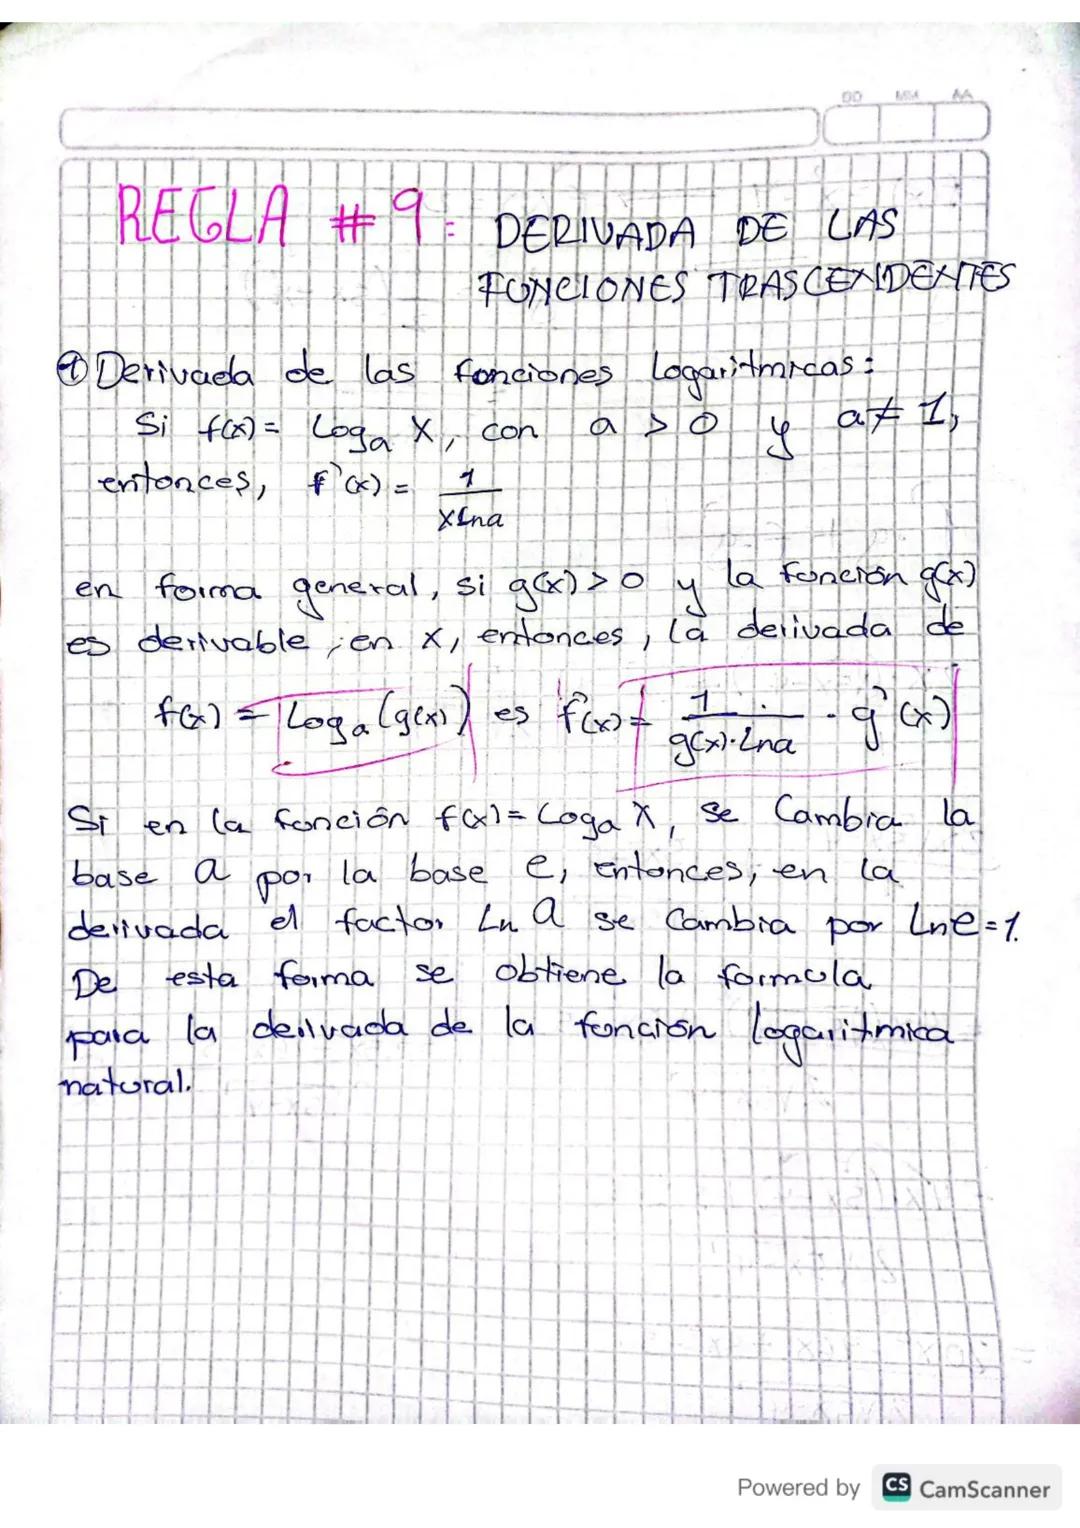 DD MM AA
REGLA # 9: DERIVADA DE LAS
FUNCIONES TRASCENDENTES
① Derivada de las funciones Logaritmicas:
Si f(x) = Loga X, con a > 0 y a ≠ 1,
entonces, f'(x) = 1
xLna
en forma general, si g(x) > 0 y la función g(x)
es derivable, en x, entonces, la derivada de
f(x) = Loga (g(x)) es f'(x) = 1 . g'(x)
g(x).Lna
Si en la función f(x) = Loga X, se Cambia la
base a por la base e, entonces, en la
derivada el factor Ln a se Cambia por Lne=1.
De esta forma se obtiene la formula
para la derivada de la función logaritmica
natural.
Powered by CS CamScanner